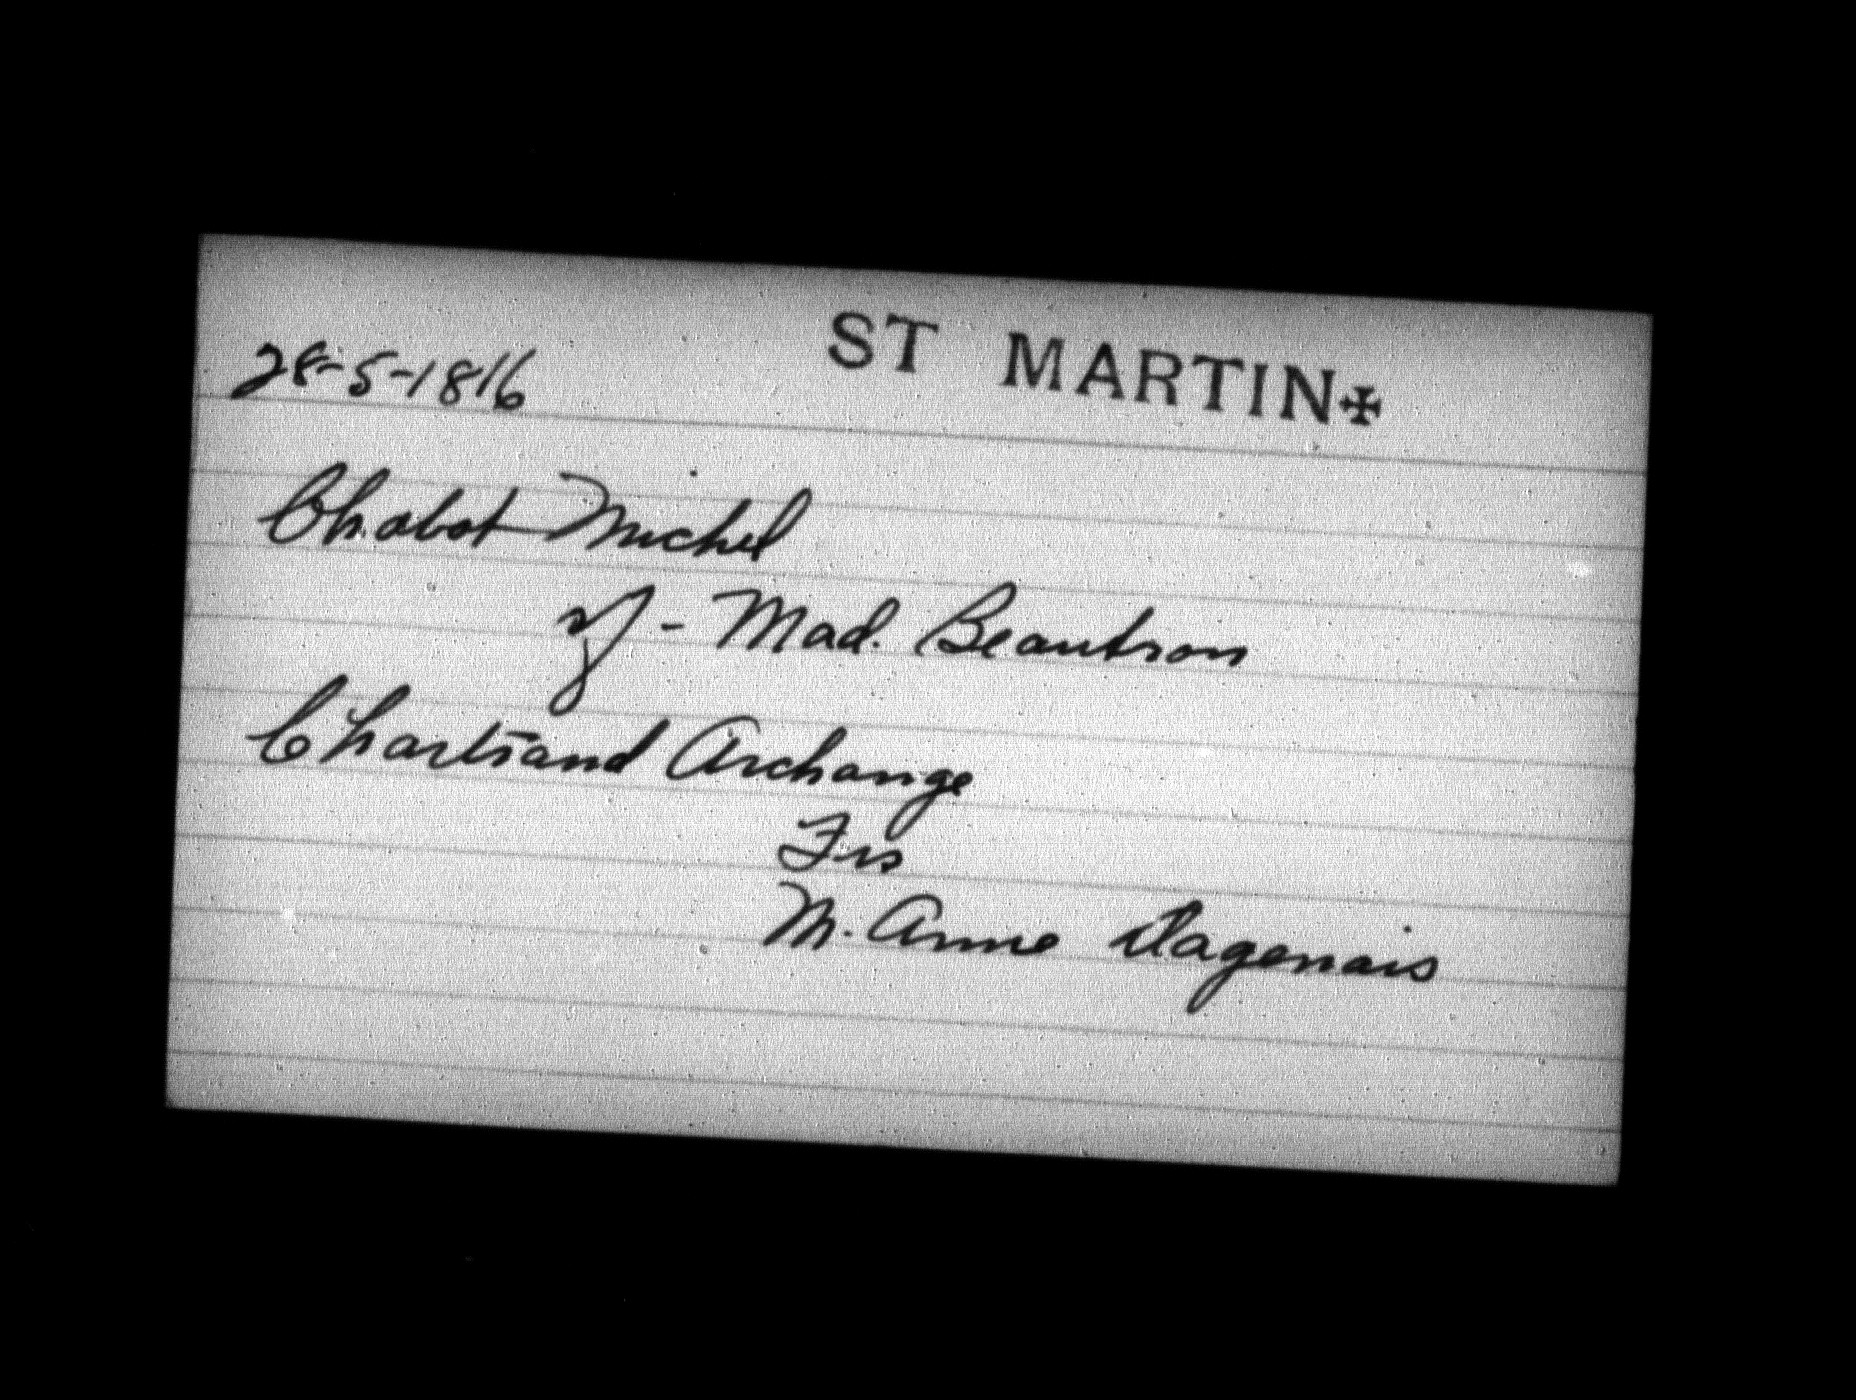 28-5-1816 ST MARTIN✠
Chabot Michel
vf - Mad. Beautron
Chartrand Archange
Frs
M. Anne Dagenais